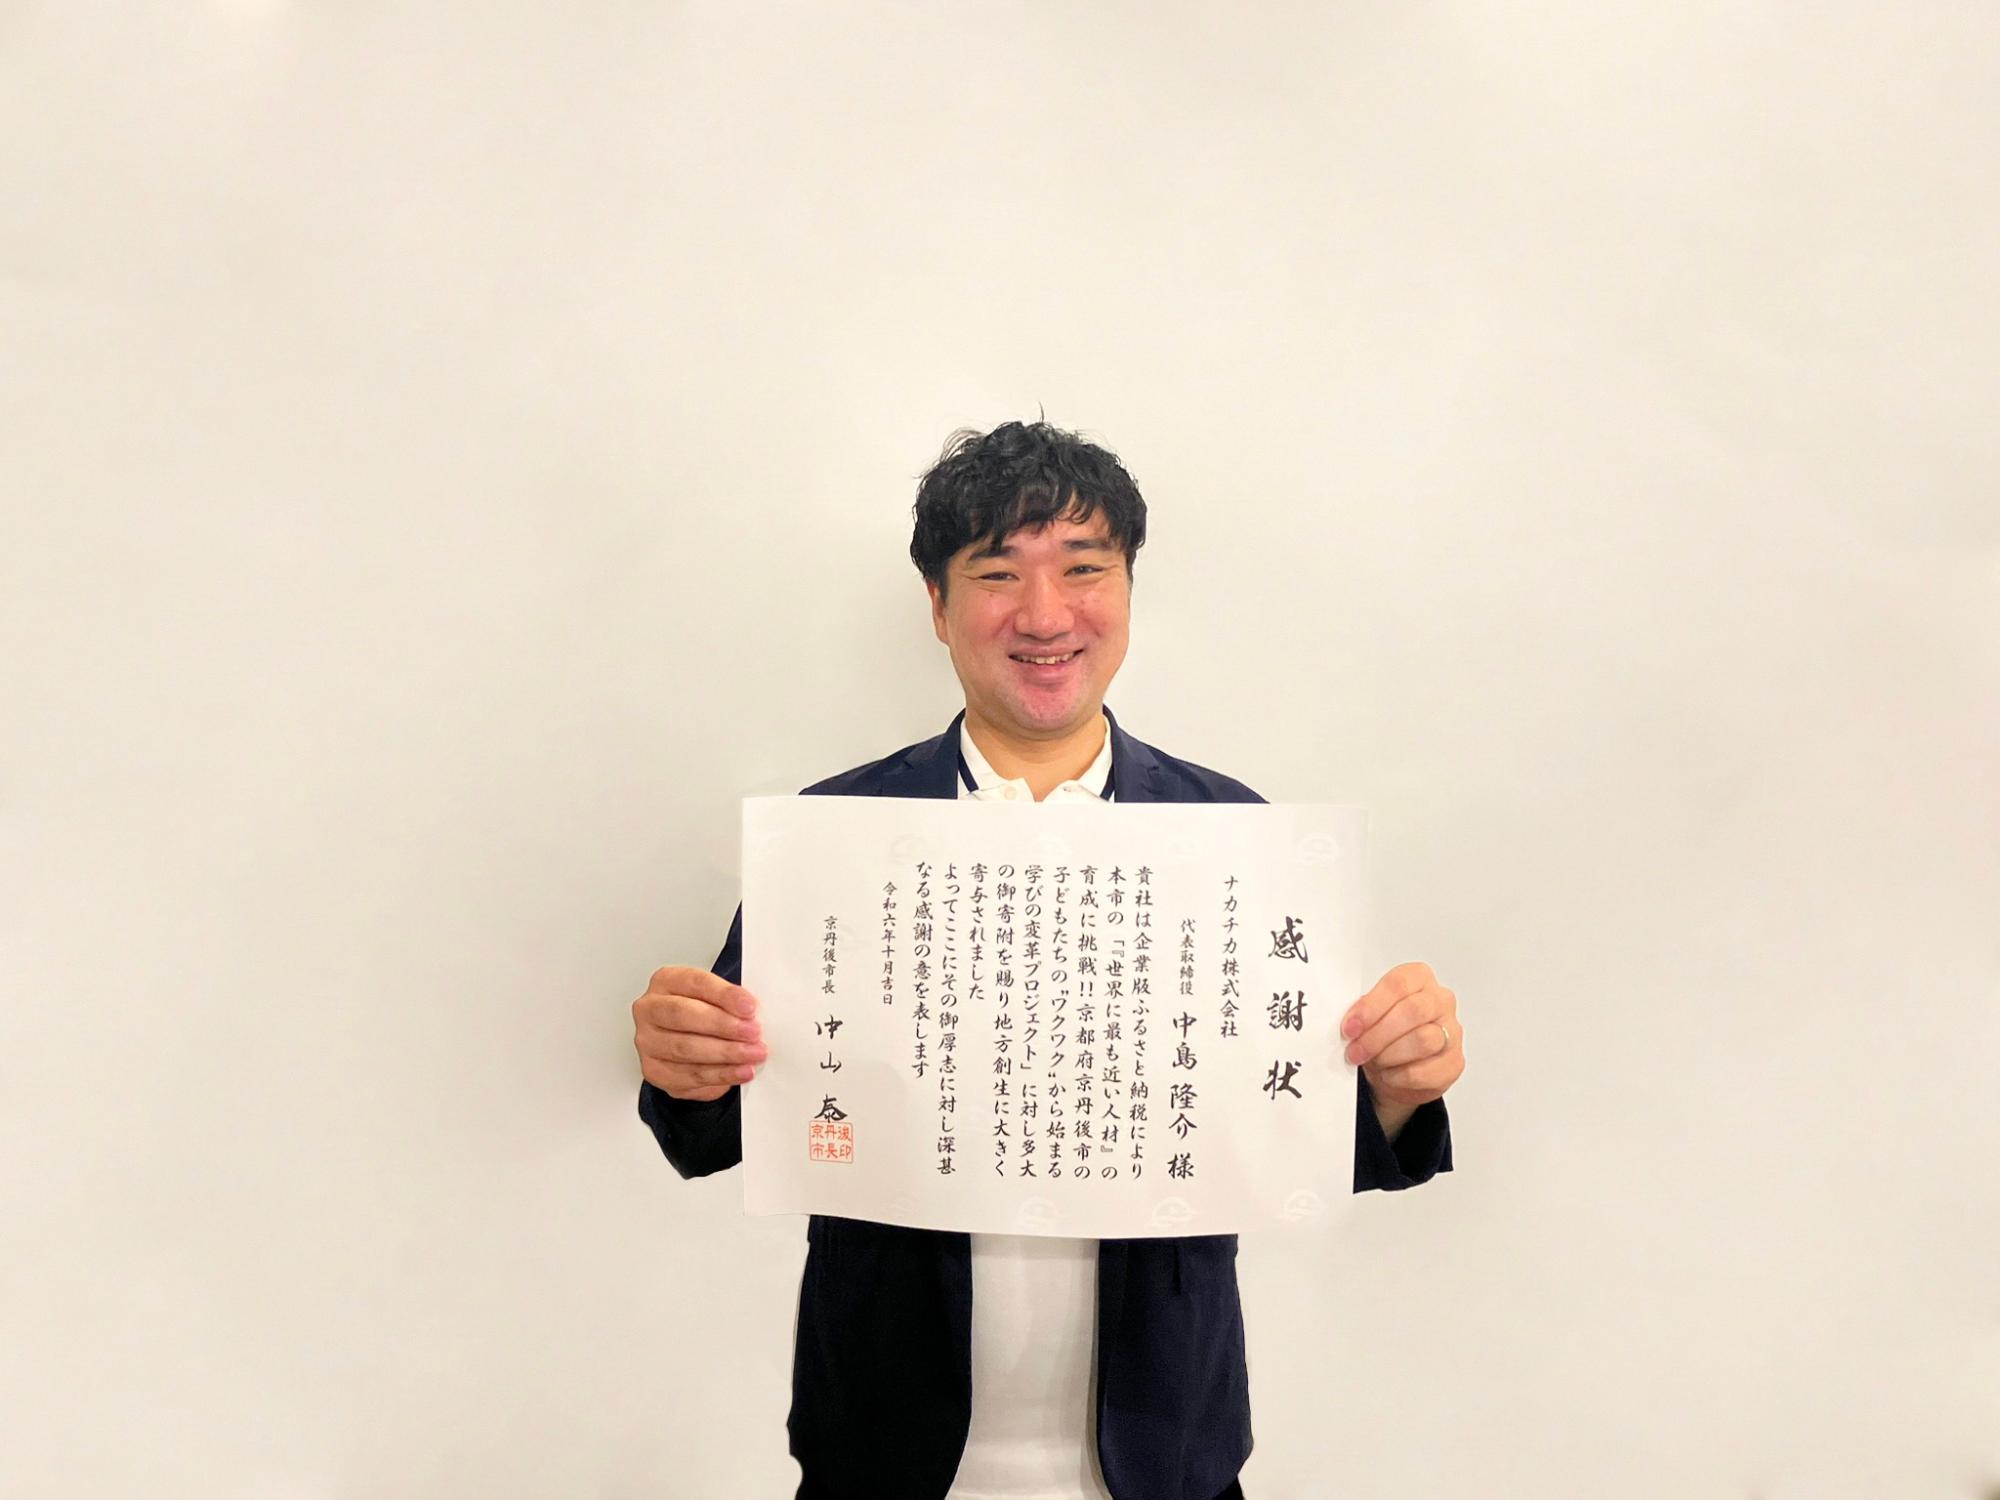 感謝状
ナカチカ株式会社
代表取締役 中島隆介 様
貴社は企業版ふるさと納税により
本市の「『世界に最も近い人材』の
育成に挑戦!!京都府京丹後市の
子どもたちの"ワクワク"から始まる
学びの変革プロジェクト」に対し多大
の御寄附を賜り地方創生に大きく
寄与されました
よってここにその御厚志に対し深甚
なる感謝の意を表します
令和六年十月吉日
京丹後市長 中山泰
京丹後
市長印